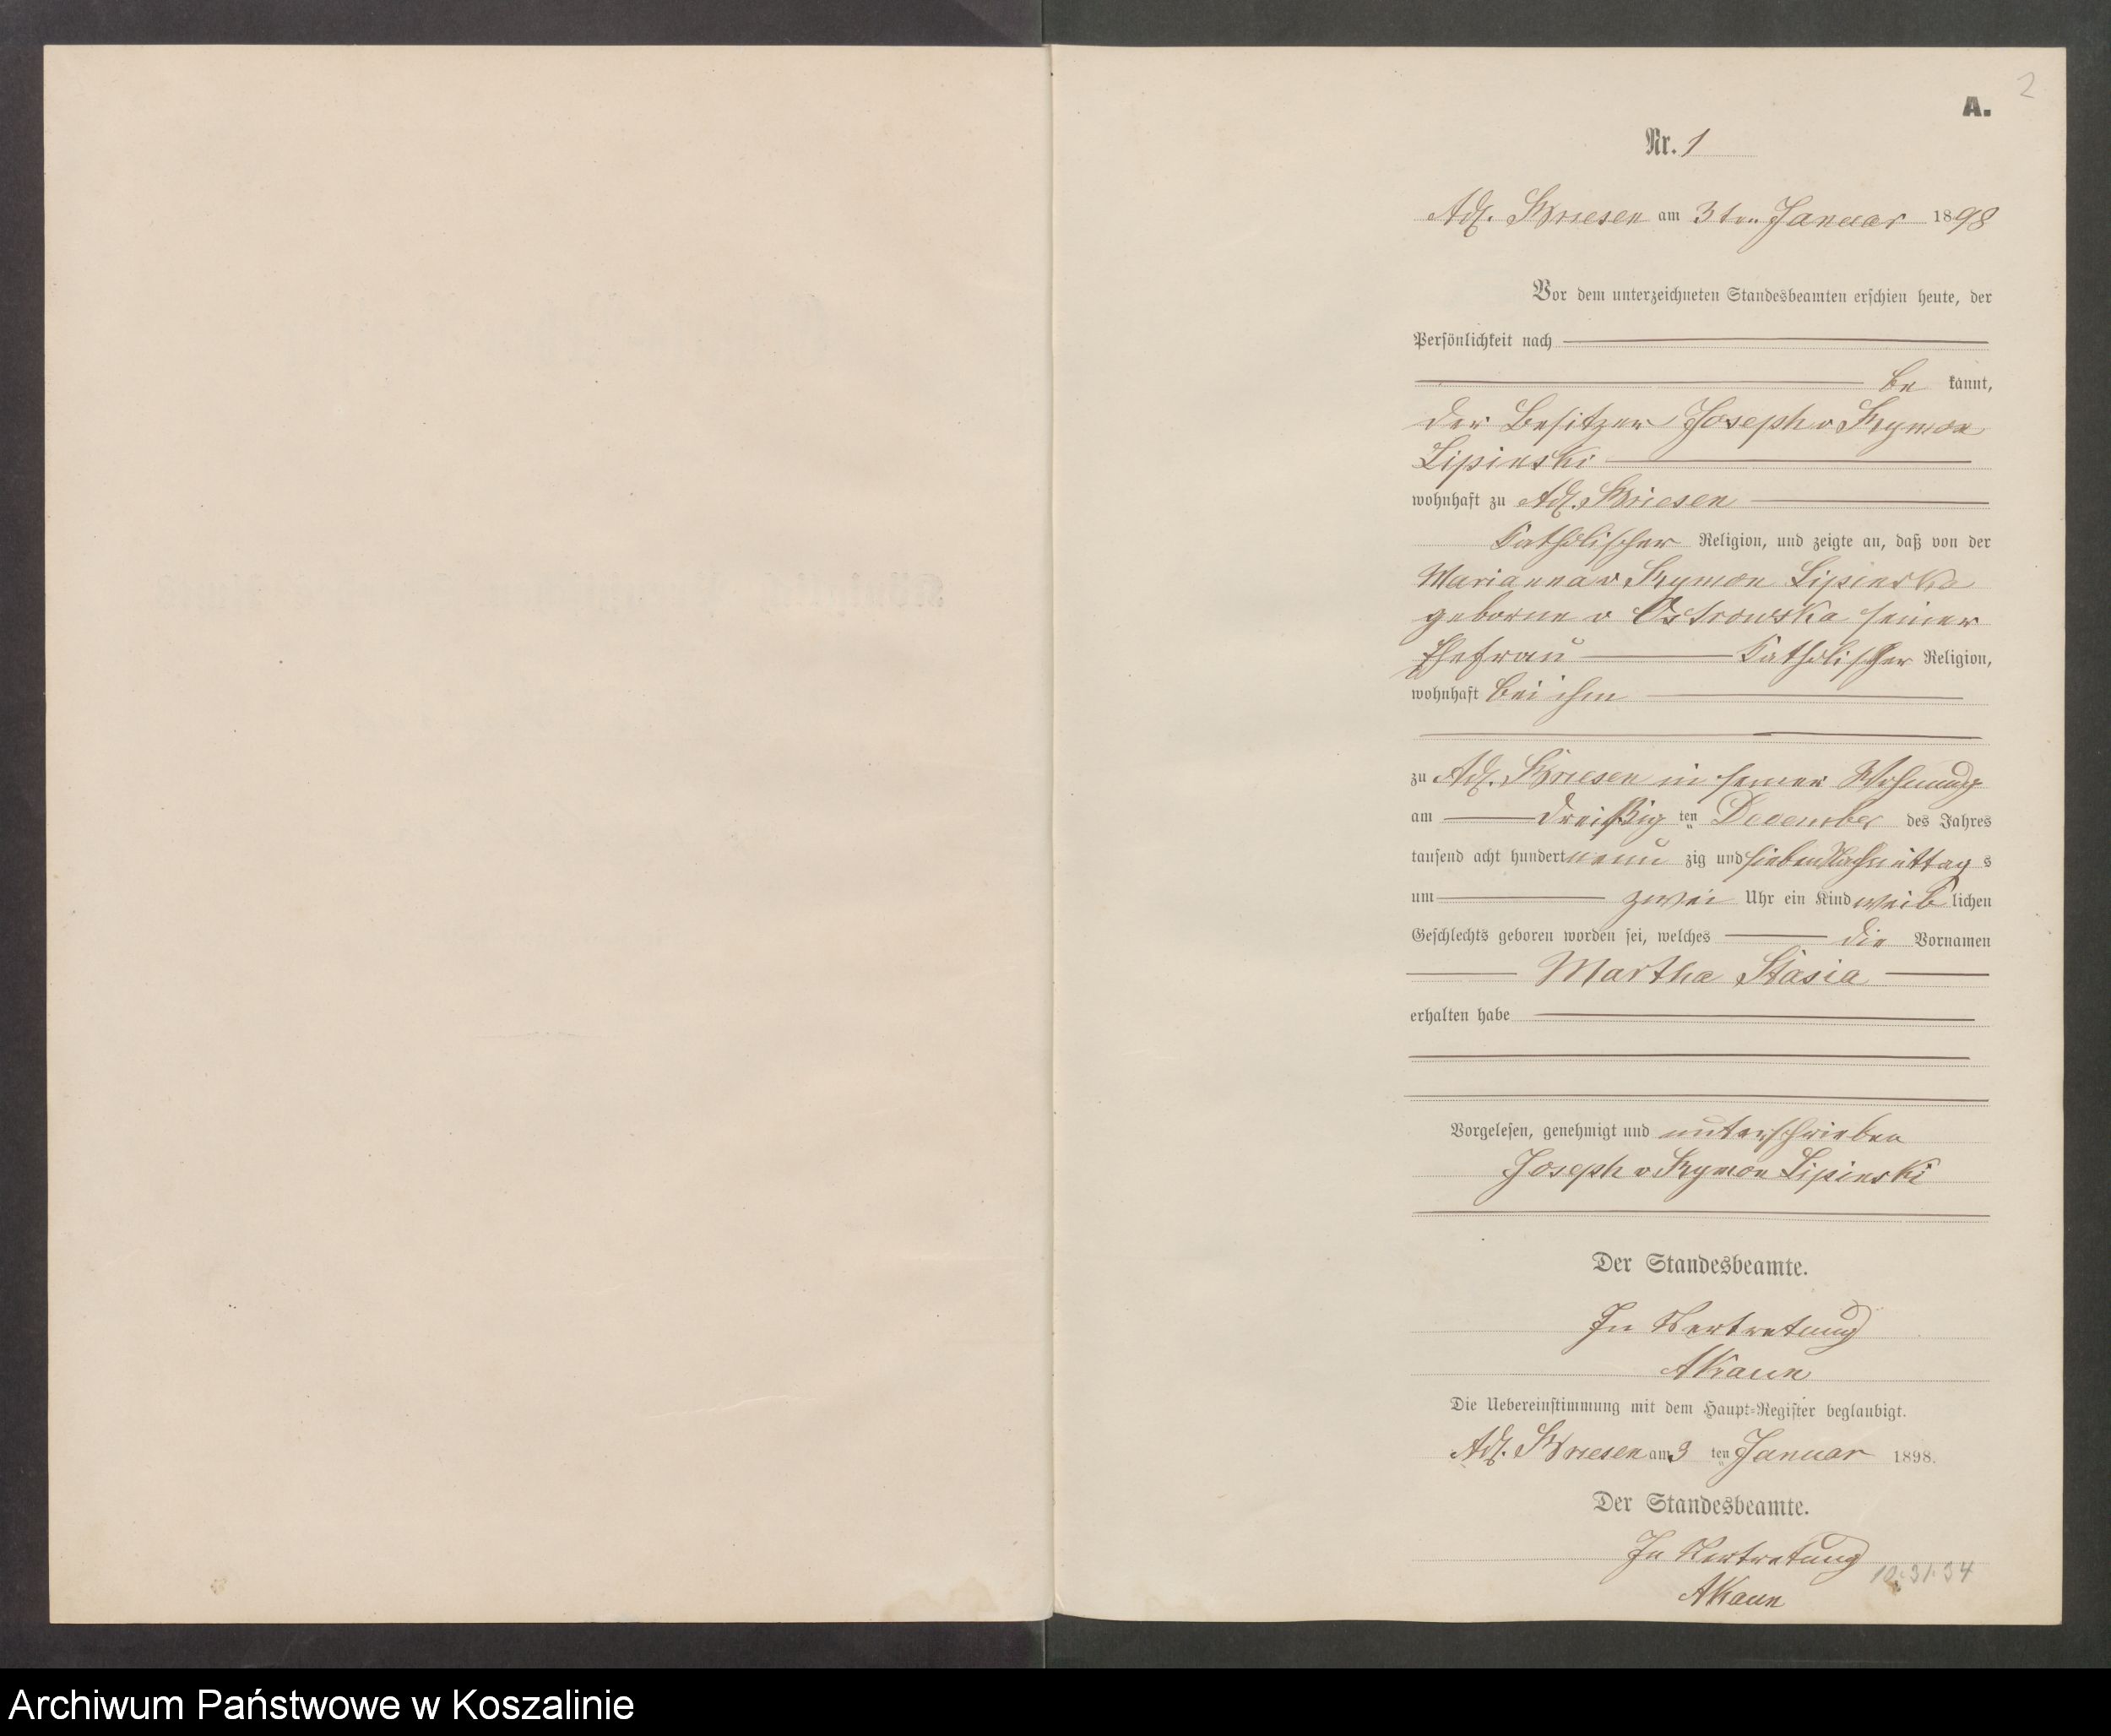 2
A.
Nr. 1
Adl. Briesen am 3ten Januar 1898
Vor dem unterzeichneten Standesbeamten erschien heute, der
Persönlichkeit nach
be kannt,
der Besitzer Joseph v
Lipinski
wohnhaft zu Adl. Briesen
Katholischer Religion, und zeigte an, daß von der
Marianna v Lipinska
geborne v Ostrowska seiner
Ehefrau Katholischer Religion,
wohnhaft bei ihm
zu Adl. Briesen in seiner Wohnung
am dreißig ten December des Jahres
tausend acht hundert neun zig und sieben Nachmittag s
um zwei Uhr ein Kind weib lichen
Geschlechts geboren worden sei, welches die Vornamen
Martha Stasia
erhalten habe
Vorgelesen, genehmigt und unterschrieben
Joseph v Lipinski
Der Standesbeamte.
In Vertretung
Die Uebereinstimmung mit dem Haupt-Register beglaubigt.
Adl. Briesen am 3 ten Januar 1898.
Der Standesbeamte.
In Vertretung
10.31.34
Archiwum Państwowe w Koszalinie